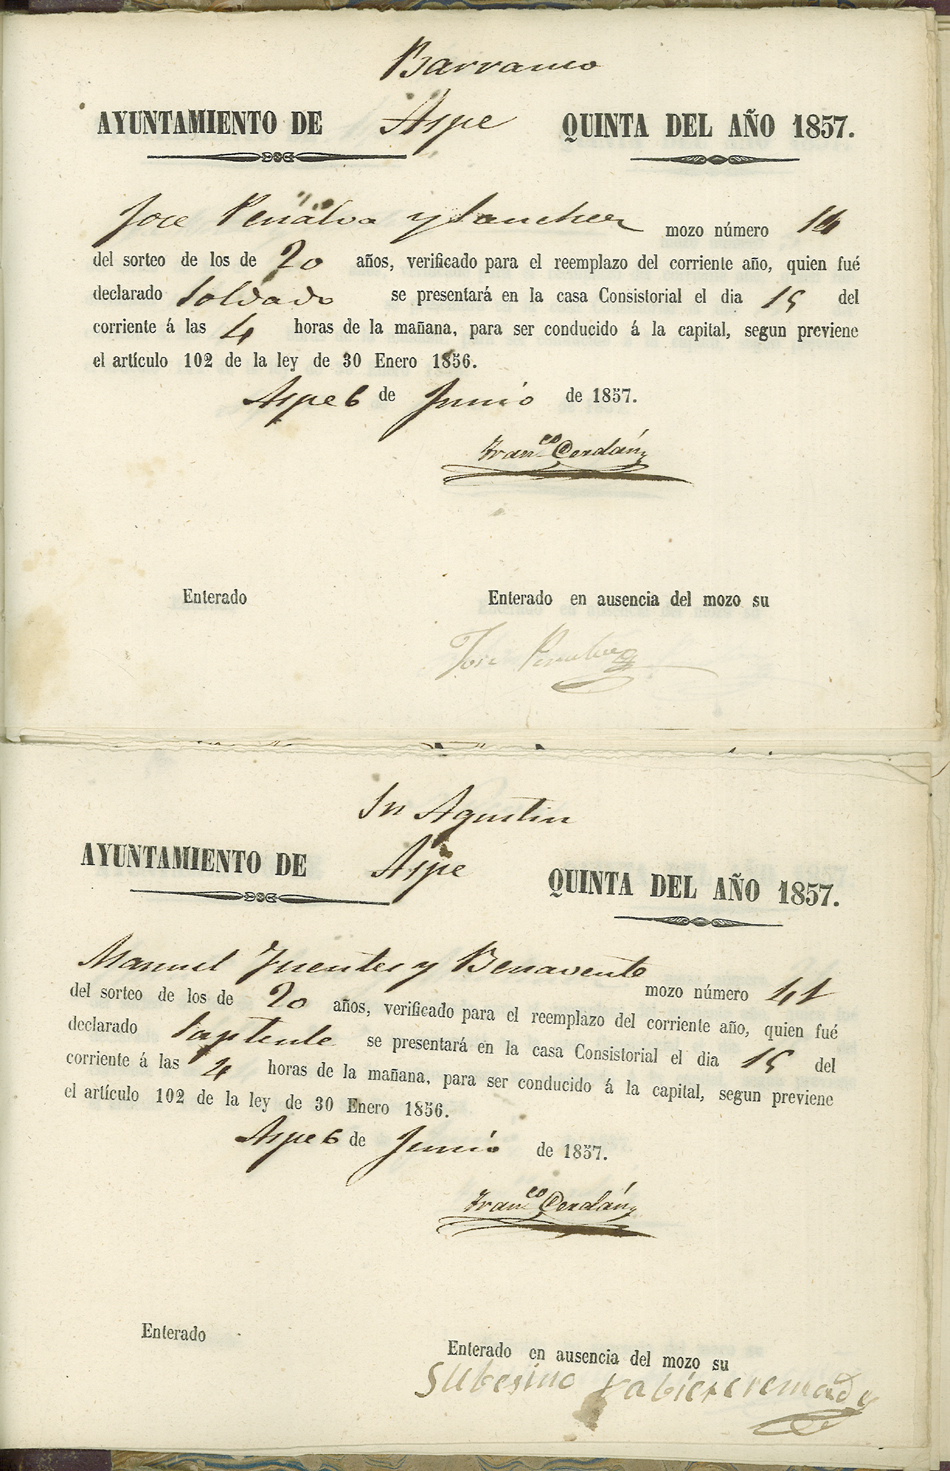 Barranco
AYUNTAMIENTO DE Aspe QUINTA DEL AÑO 1857.
Jose Penalva y Sanchez mozo número 16
del sorteo de los de 20 años, verificado para el reemplazo del corriente año, quien fué
declarado Soldado se presentará en la casa Consistorial el dia 15 del
corriente á las 4 horas de la mañana, para ser conducido á la capital, segun previene
el artículo 102 de la ley de 30 Enero 1856.
Aspe 6 de Junio de 1857.
Fran.co Cerdán
Enterado Enterado en ausencia del mozo su
Jose Penalva
Sn Agustin
AYUNTAMIENTO DE Aspe QUINTA DEL AÑO 1857.
Manuel Fuentes y Benavente mozo número 41
del sorteo de los de 20 años, verificado para el reemplazo del corriente año, quien fué
declarado Suplente se presentará en la casa Consistorial el dia 15 del
corriente á las 4 horas de la mañana, para ser conducido á la capital, segun previene
el artículo 102 de la ley de 30 Enero 1856.
Aspe 6 de Junio de 1857.
Fran.co Cerdán
Enterado Enterado en ausencia del mozo su
Subesino